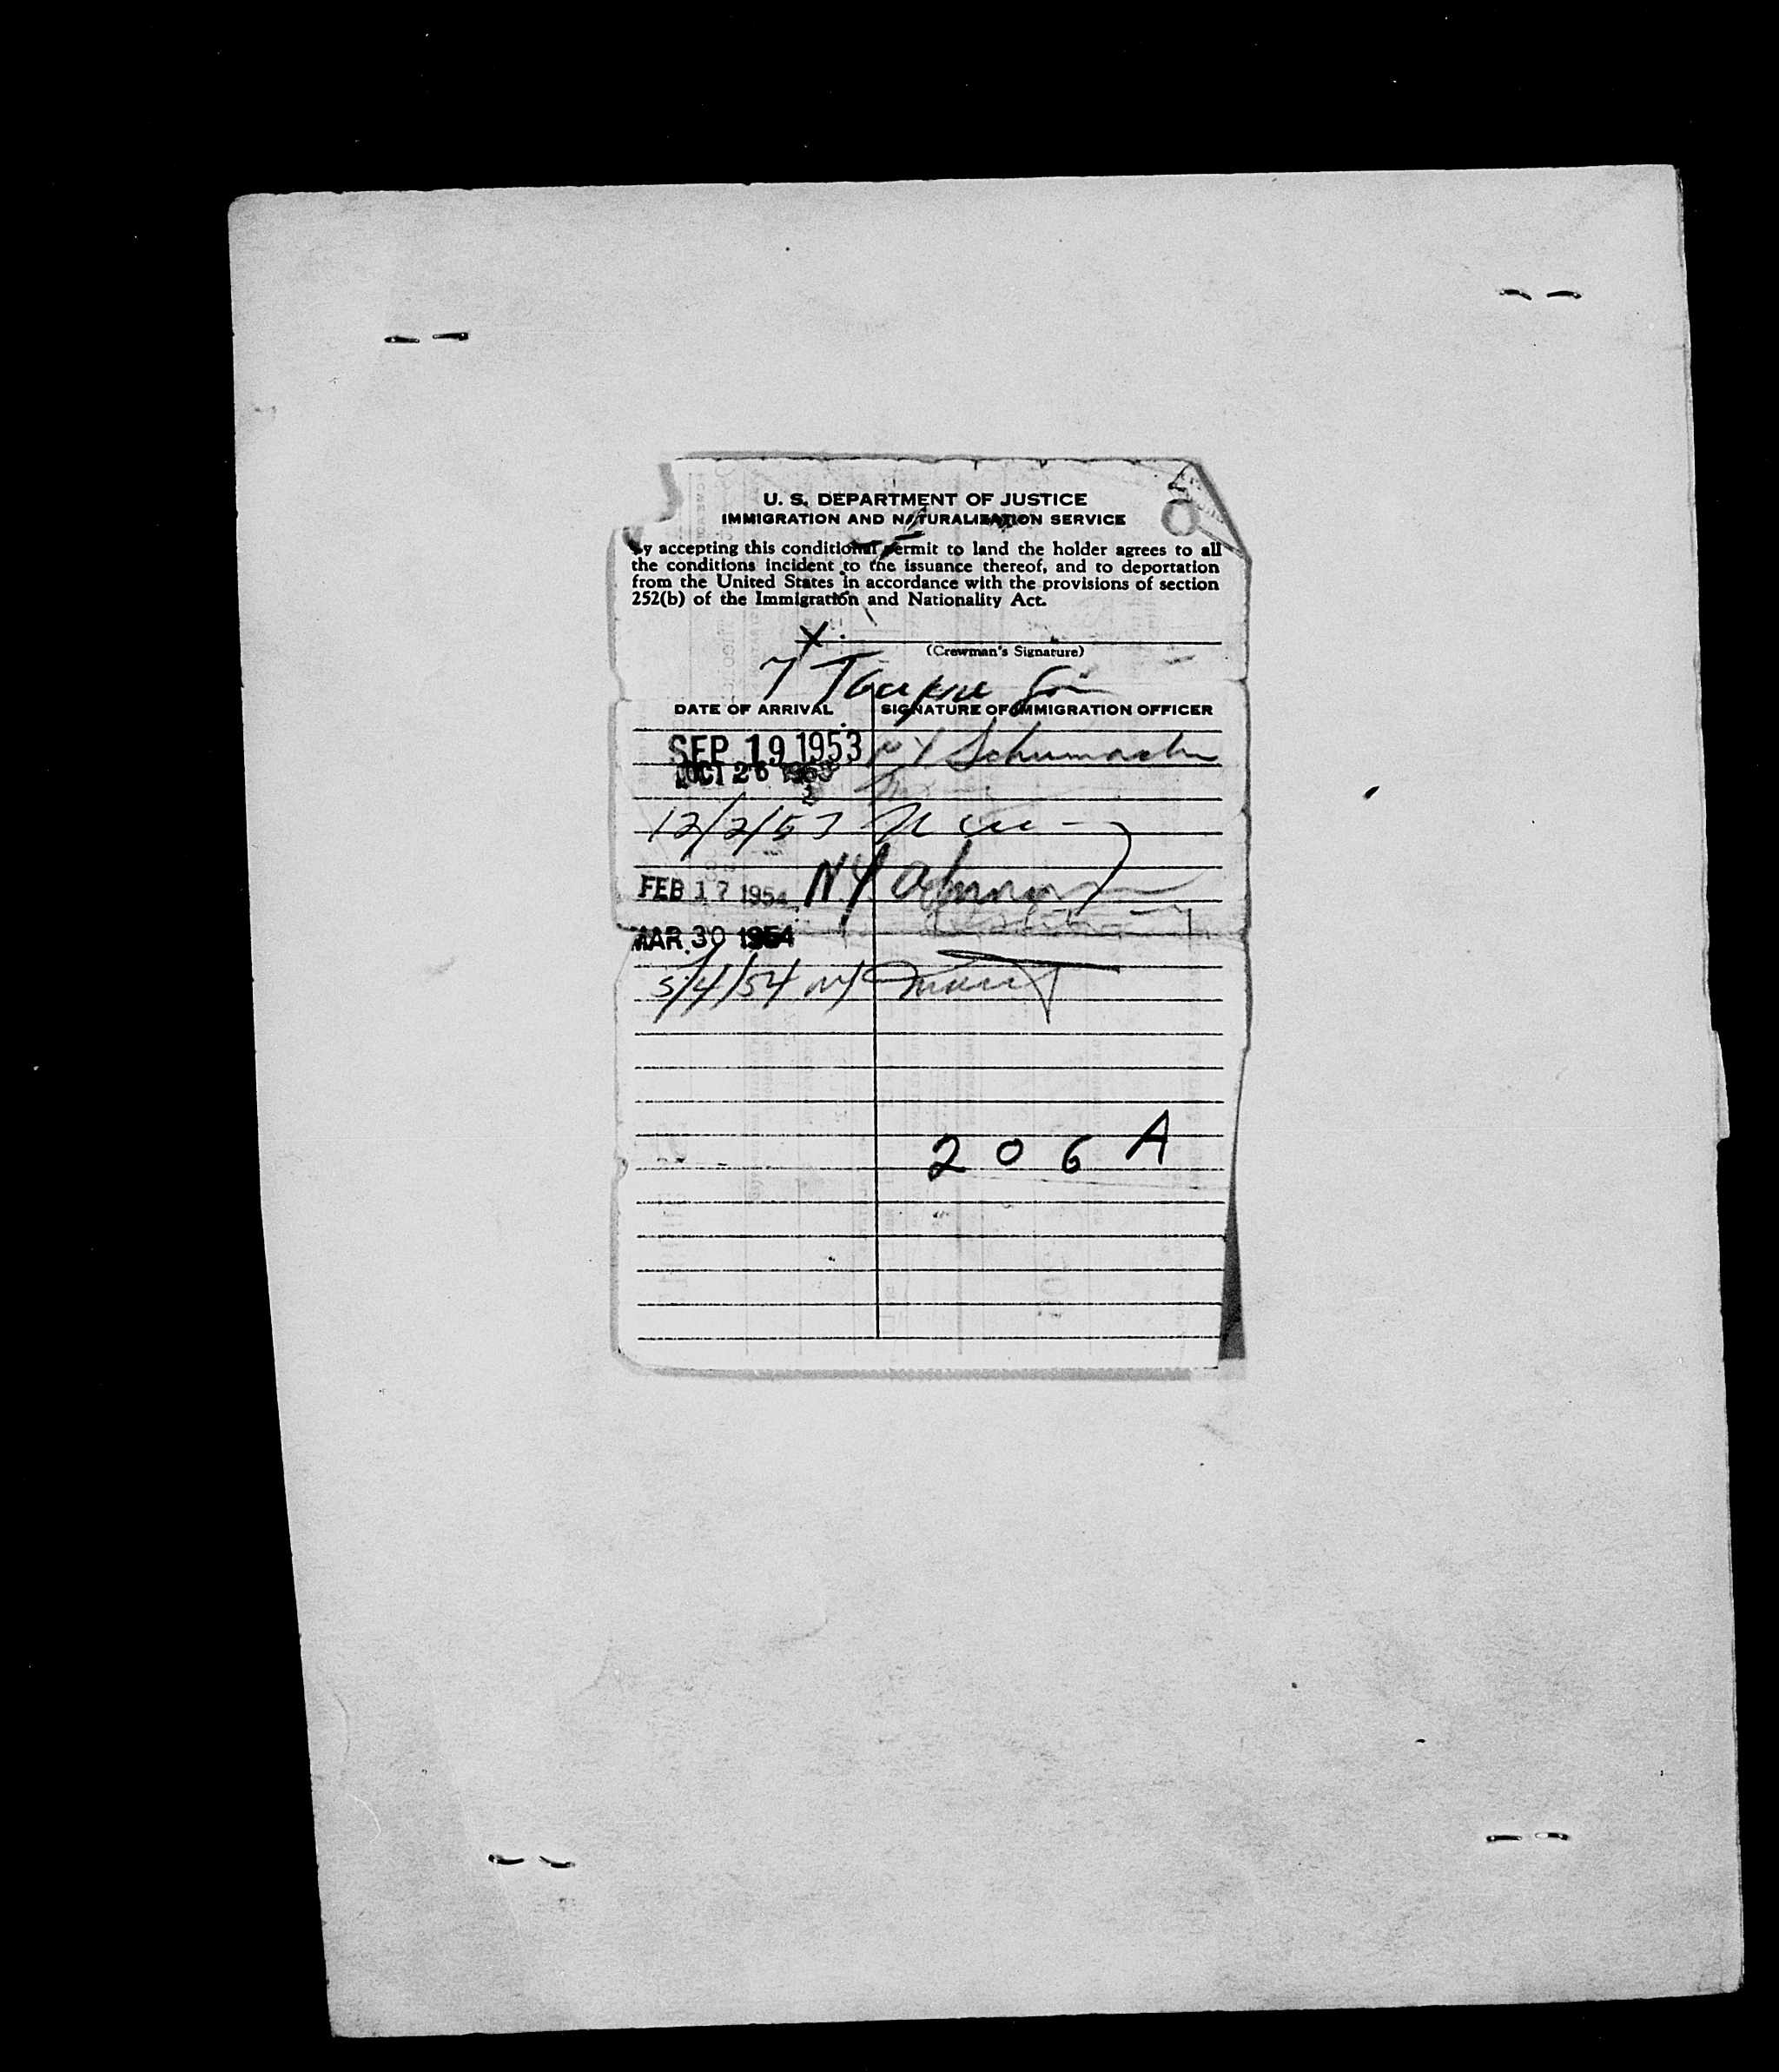 U. S. DEPARTMENT OF JUSTICE
IMMIGRATION AND NATURALIZATION SERVICE
By accepting this conditional permit to land the holder agrees to all
the conditions incident to the issuance thereof, and to deportation
from the United States in accordance with the provisions of section
252(b) of the Immigration and Nationality Act.
X
(Crewman's Signature)
DATE OF ARRIVAL SIGNATURE OF IMMIGRATION OFFICER
SEP 19 1953 NY Schumacher
OCT 26 1953
12/2/53
FEB 17 1954 NY
MAR 30 1954
5/4/54 NY
206A